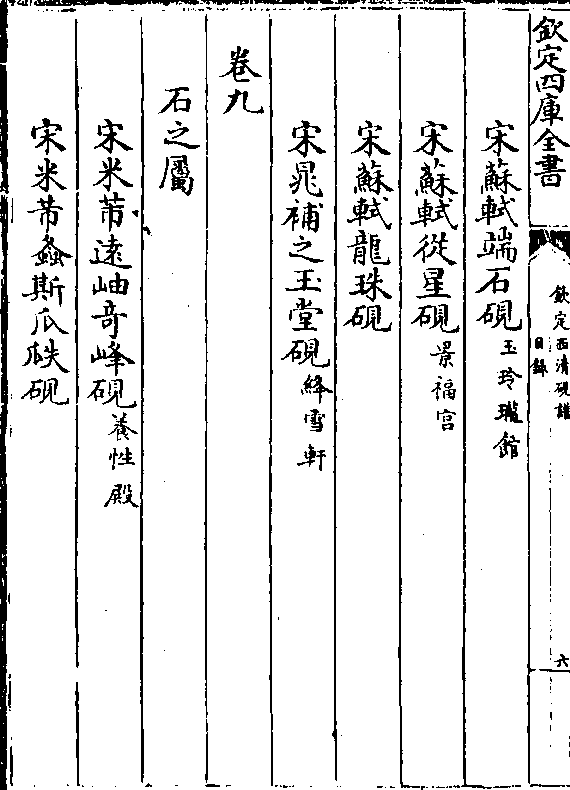 欽定四庫全書
欽定西清硯譜
目錄
六
宋蘇軾端石硯玉玲瓏館
宋蘇軾從星硯景福宫
宋蘇軾龍珠硯
宋晁補之玉堂硯絳雪軒
卷九
石之屬
宋米芾遠岫奇峰硯養性殿
宋米芾螽斯瓜瓞硯